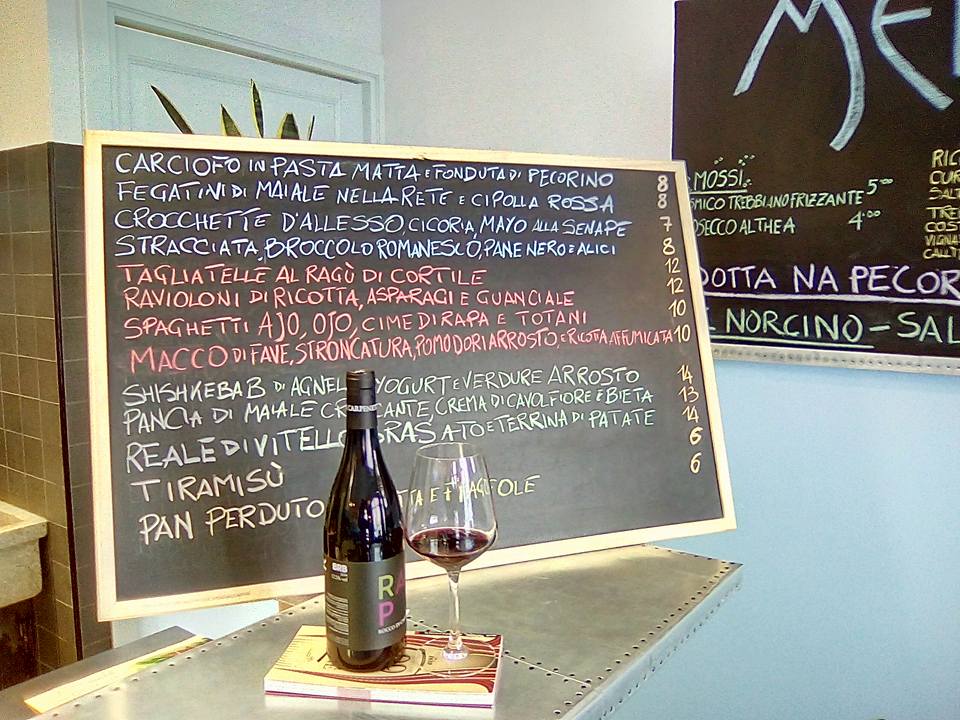 CARCIOFO IN PASTA MATTA E FONDUTA DI PECORINO 8
FEGATINI DI MAIALE NELLA RETE E CIPOLLA ROSSA 8
CROCCHETTE D'ALLESSO, CICORIA, MAYO ALLA SENAPE 7
STRACCIATA, BROCCOLO ROMANESCO, PANE NERO E ALICI 8
TAGLIATELLE AL RAGÙ DI CORTILE 12
RAVIOLONI DI RICOTTA, ASPARAGI E GUANCIALE 12
SPAGHETTI AJO, OJO, CIME DI RAPA E TOTANI 10
MACCO DI FAVE, STRONCATURA, POMODORI ARROSTO, E RICOTTA AFFUMICATA 10
SHISHKEBAB DI AGNEL YOGURT E VERDURE ARROSTO 14
PANCIA DI MAIALE CR CANTE, CREMA DI CAVOLFIORE E BIETA 13
REALE DI VITELLO BRASATO E TERRINA DI PATATE 14
TIRAMISÙ 6
PAN PERDUTO 6
ME
MOSSI
MICO TREBBIANO FRIZZANTE 5
OSECCO ALTHEA 4
RIC
CUR
SALT
TRE
COST
VIGNA
DOTTA NA PECOR
NORCINO - SAL
CARPENE
BRB
RA
P
ROCCO